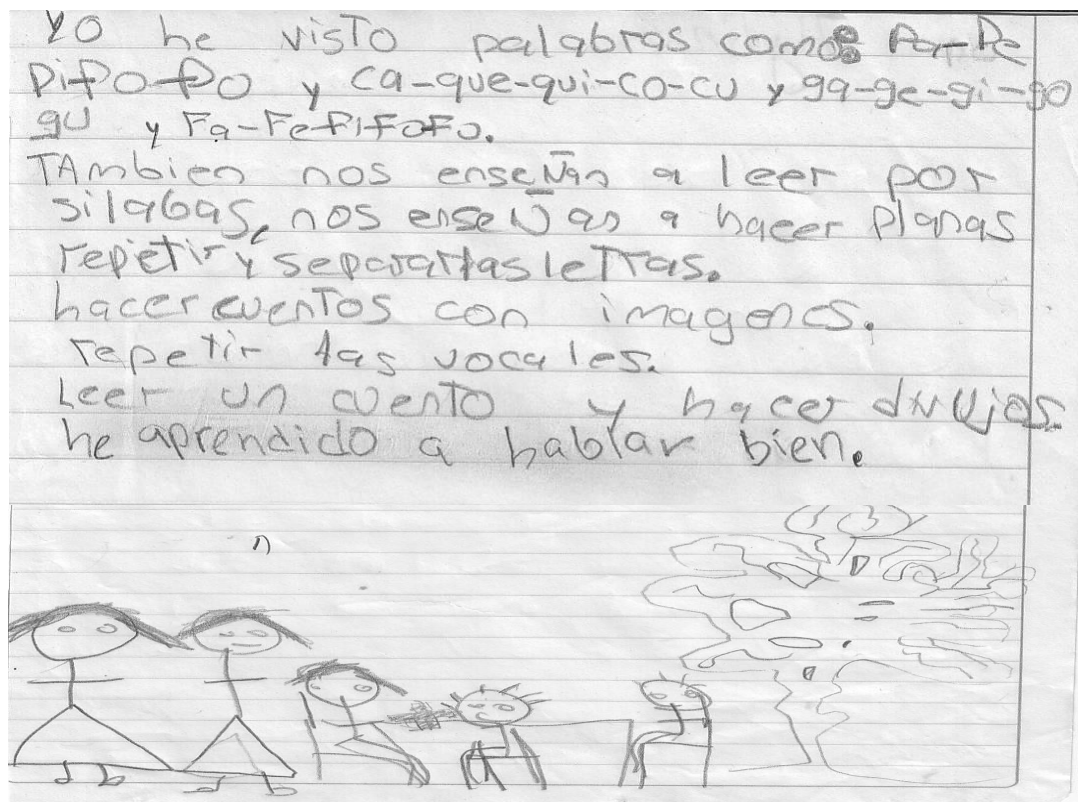 Yo he visto palabras como Pa-Pe
Pi-Po-Po y ca-que-qui-co-cu y ga-ge-gi-go
gu y Fa-FeFiFoFo.
TAmbien nos enseÑan a leer por
silabas, nos enseÑan a hacer planas
repetir y separar las letras.
hacer cuentos con imagenes.
repetir las vocales.
Leer un cuento y hacer divujos.
he aprendido a hablar bien.
n